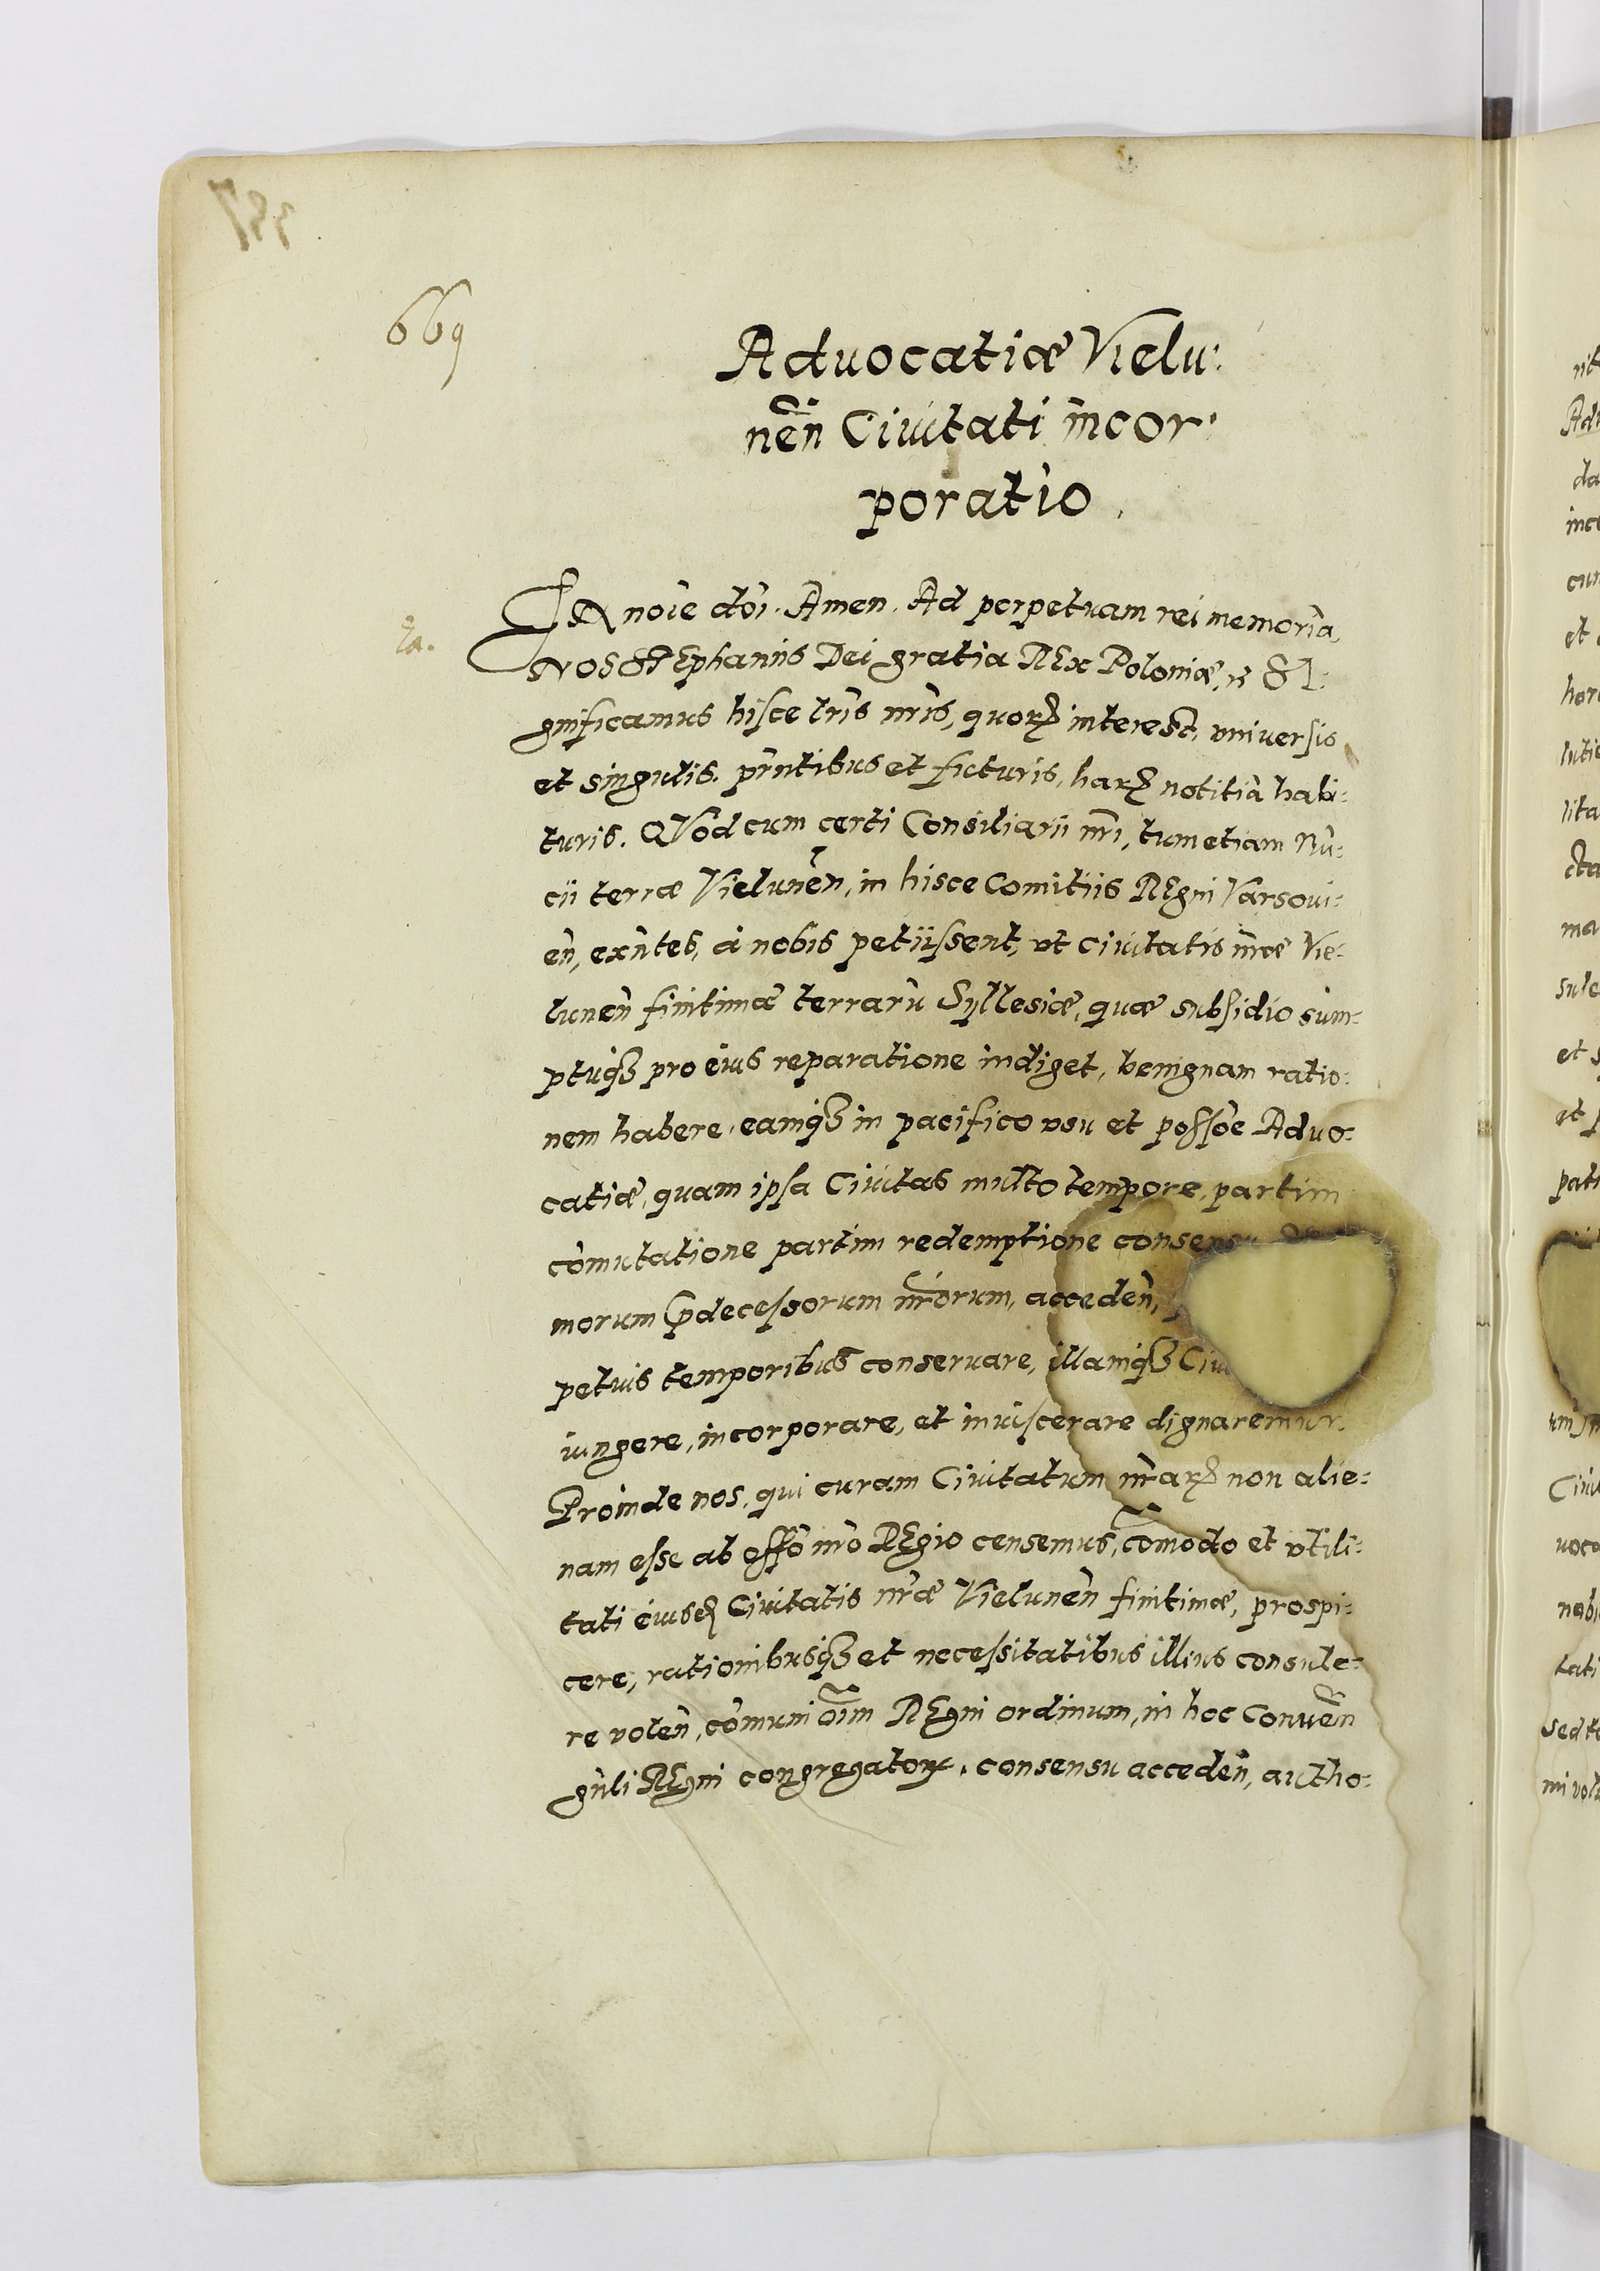 669
Aduocatiæ Vielu:
nen̄ Ciuitati incor:
poratio.
ta.
In noīe dn̄i. Amen. Ad perpetuam rei memoriā,
Nos STEphanus Dei gratia REx Poloniæ, SI:
gnificamus hisce lr̄is nr̄is, quorꝫ interest, vniuersis
et singulis. pr̄ntibus et futuris, harꝫ notitiā habi:
turis. QVod cum certi Consiliarii nr̄i, tum etiam Nū:
cii terræ Vielunen̄, in hisce Comitiis REgni Varsoui:
en̄, exn̄tes, à nobis petiissent, vt ciuitatis nr̄æ Vie:
lunen̄ finitimæ terrarū Syllesiæ, quæ subsidio sum:
ptuqꝫ pro eius reparatione indiget, benignam ratio:
nem habere, eamqꝫ in pacifico vsu et posso͞e Aduo:
catiæ, quam ipsa Ciuitas multo tempore, partim
cōmutatione partim redemptione consensu
morum p̄decessorum nr̄orum, acceden̄,
petuis temporibus conseruare, illamqꝫ Ciu
iungere, incorporare, et inuiscerare dignaremur.
Proinde nos, qui curam Ciuitatum nr̄arꝫ non alie:
nam esse ab offō nr̄o REgio censemus, cōmodo et vtili:
tati eiusdꝫ Ciuitatis nr̄æ Vielunen̄ finitimæ, prospi:
cere, rationibusqꝫ et necessitatibus illius consule:
re volen̄, cōmuni oīm REgni ordinum, in hoc Conuen̄
gn̄li REgni congregatorꝫ, consensu acceden̄, autho: